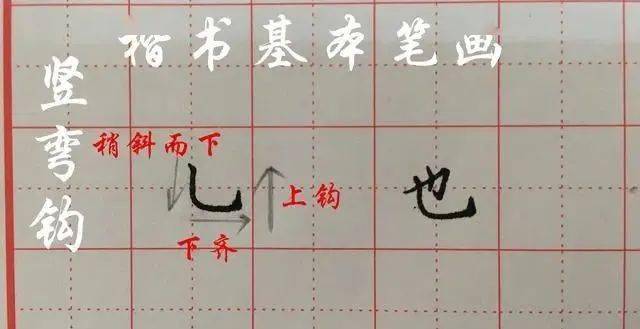 楷书基本笔画
竖弯钩
稍斜而下
乚
上钩
下齐
也